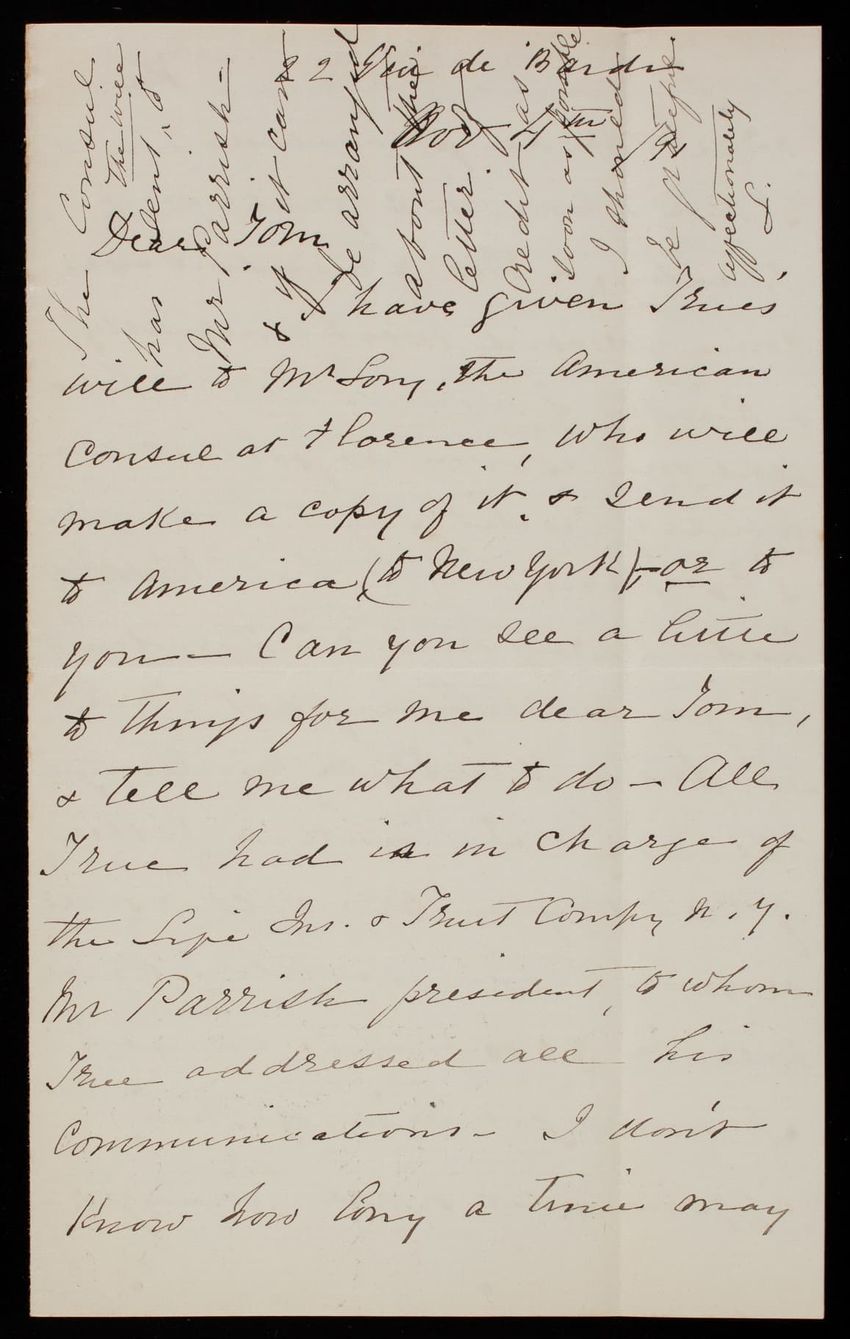 22 Via de' Bardi
Nov 4th
Dear Tom
I have given True's
will to Mr Long, the American
Consul at Florence, who will
make a copy of it, & send it
to America (to New York) - or to
you - Can you see a little
to things for me dear Tom,
& tell me what to do - All
True had is in charge of
the Life Ins. & Trust Compy N. Y.
Mr Parrish president, to whom
True addressed all his
Communications - I don't
Know how long a time may
The Consul
has sent the will to
Mr Parrish -
& if it can
be arranged
about the
letter
Credit as
soon as possible
I should
be grateful
affectionately
L.